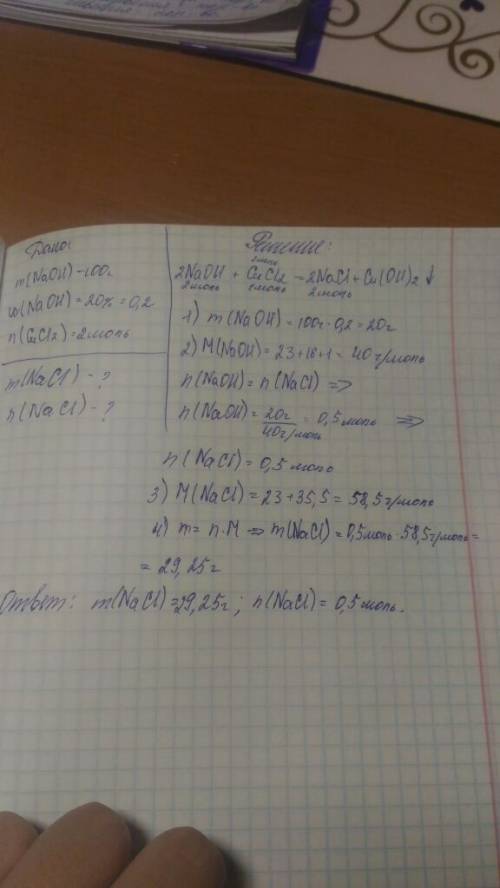 Дано:
m(NaOH) = 100г
ω(NaOH) = 20% = 0,2
n(CuCl2) = 2 моль
m(NaCl) - ?
n(NaCl) - ?
Решение:
2 моль
2NaOH + CuCl2 = 2NaCl + Cu(OH)2 ↓
2 моль 1 моль 2 моль
1) m(NaOH) = 100г · 0,2 = 20г
2) M(NaOH) = 23+16+1 = 40 г/моль
n(NaOH) = n(NaCl) =>
n(NaOH) = 20г / 40г/моль = 0,5 моль =>
n(NaCl) = 0,5 моль
3) M(NaCl) = 23+35,5 = 58,5 г/моль
4) m = n·M => m(NaCl) = 0,5 моль · 58,5 г/моль =
= 29,25 г
Ответ: m(NaCl) = 29,25г; n(NaCl) = 0,5 моль.